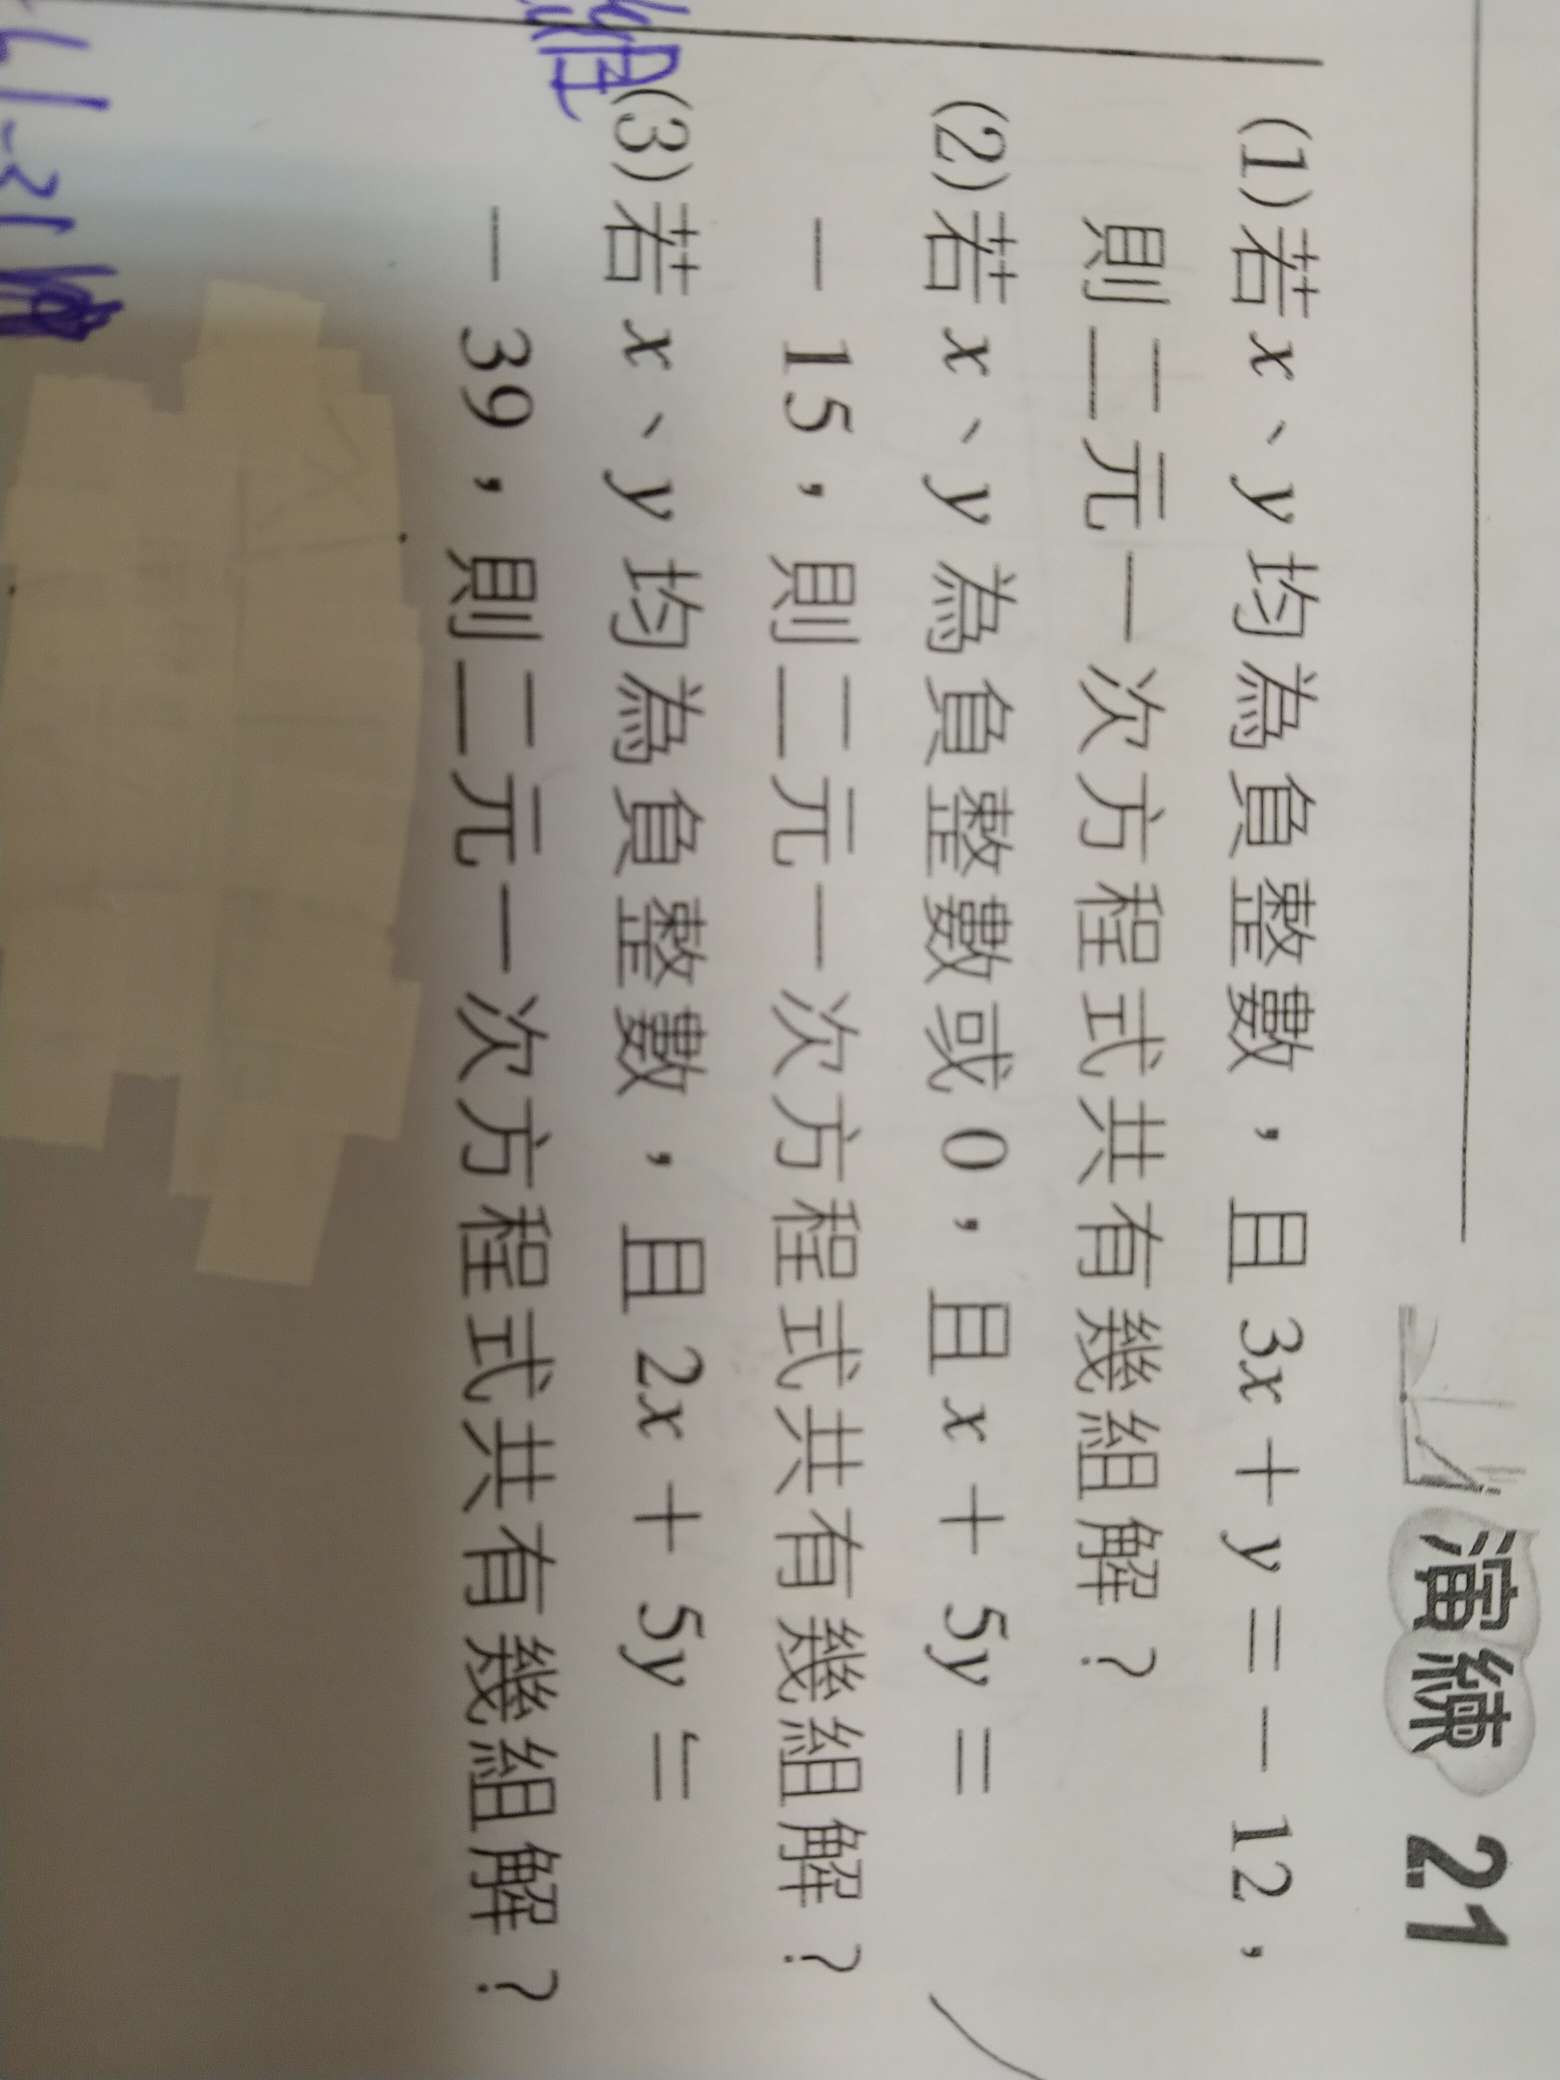 演練 21
(1)若 x、y 均為負整數，且 3x + y = － 12，
則二元一次方程式共有幾組解？
(2)若 x、y 為負整數或 0，且 x + 5y =
－ 15，則二元一次方程式共有幾組解？
(3)若 x、y 均為負整數，且 2x + 5y =
－ 39，則二元一次方程式共有幾組解？